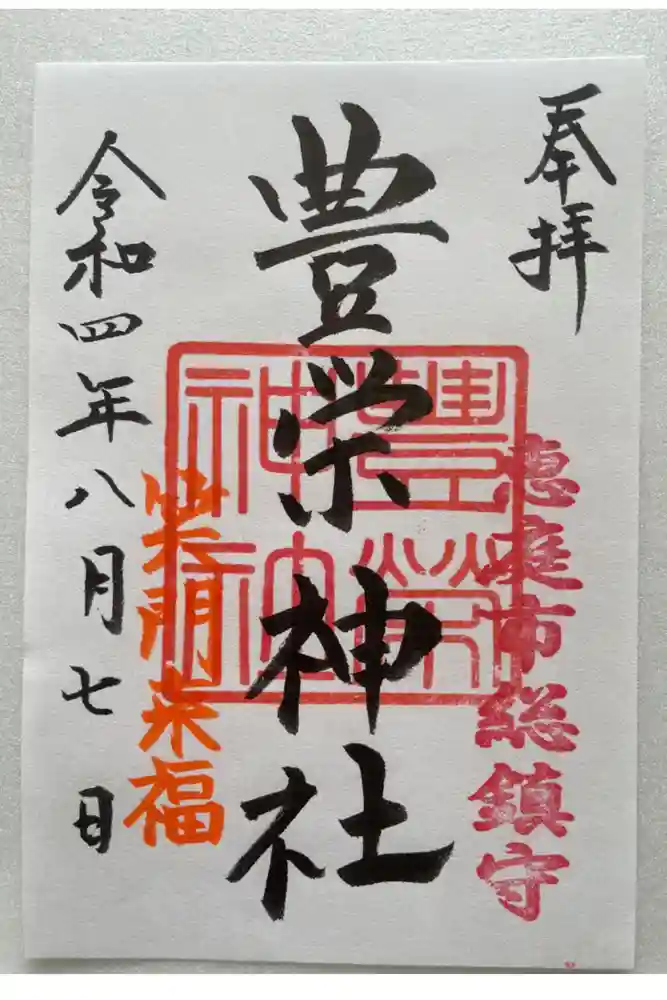 奉拝
恵庭市総鎮守
豊栄神社
豊榮神社
笑門来福
令和四年八月七日